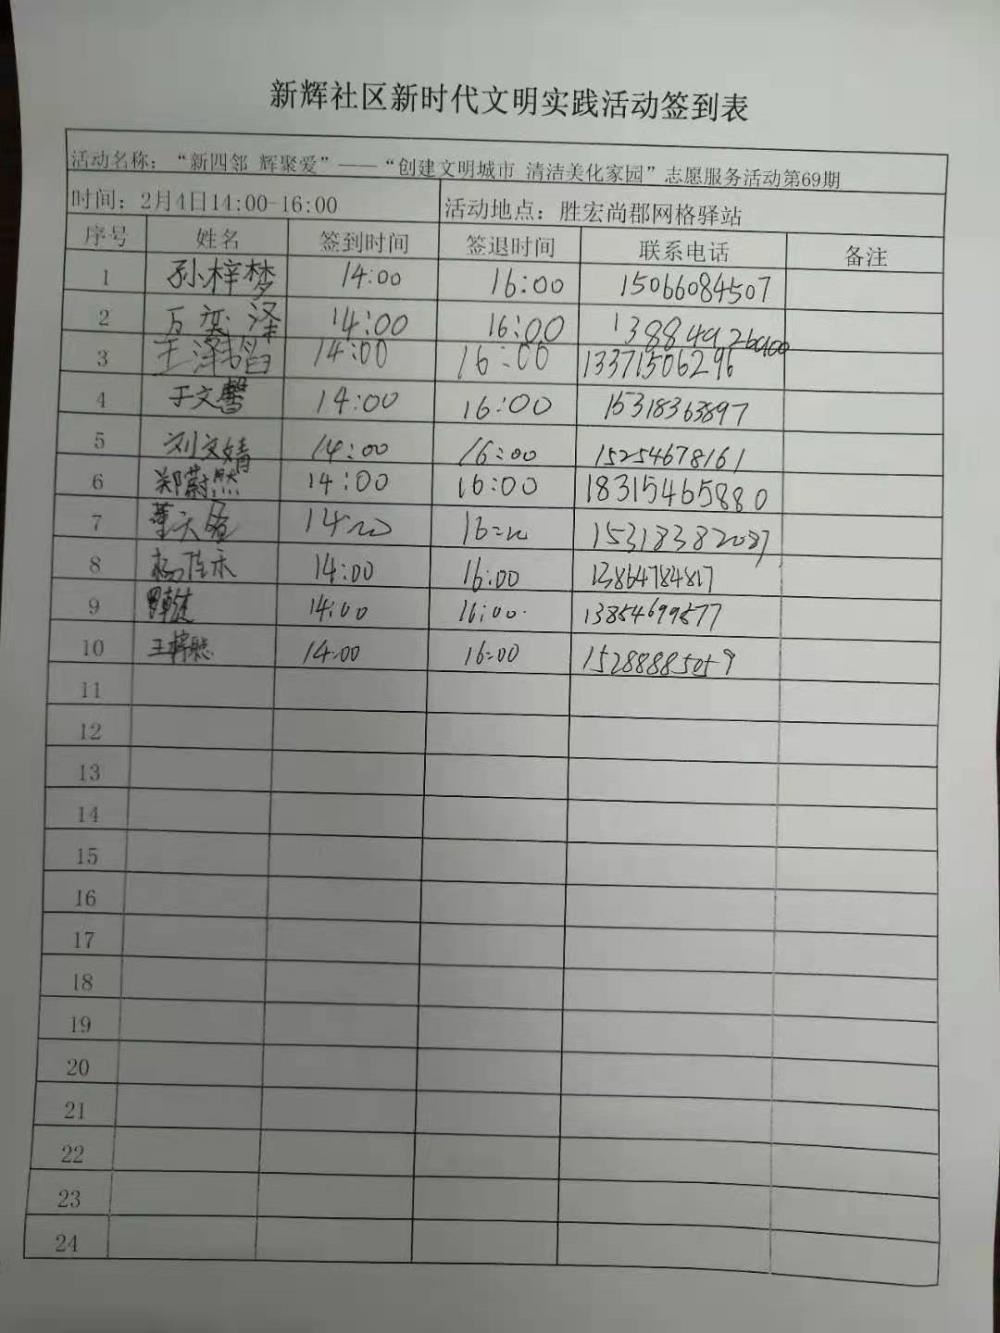 新辉社区新时代文明实践活动签到表
活动名称：“新四邻 辉聚爱”——“创建文明城市 清洁美化家园”志愿服务活动第69期
时间：2月4日14:00-16:00 活动地点：胜宏尚郡网格驿站
序号 姓名 签到时间 签退时间 联系电话 备注
1 孙梓梦 14:00 16:00 15066084507
2 万奕泽 14:00 16:00
3 王泽 14:00 16:00 13371506296
4 于文馨 14:00 16:00 15318363897
5 刘文婧 14:00 16:00 15254678161
6 郑蔚然 14:00 16:00 18315465880
7 14:00 16:00 15318382087
8 杨佳禾 14:00 16:00 13864784817
9 14:00 16:00 13854699577
10 王 14:00 16:00 15288885059
11
12
13
14
15
16
17
18
19
20
21
22
23
24